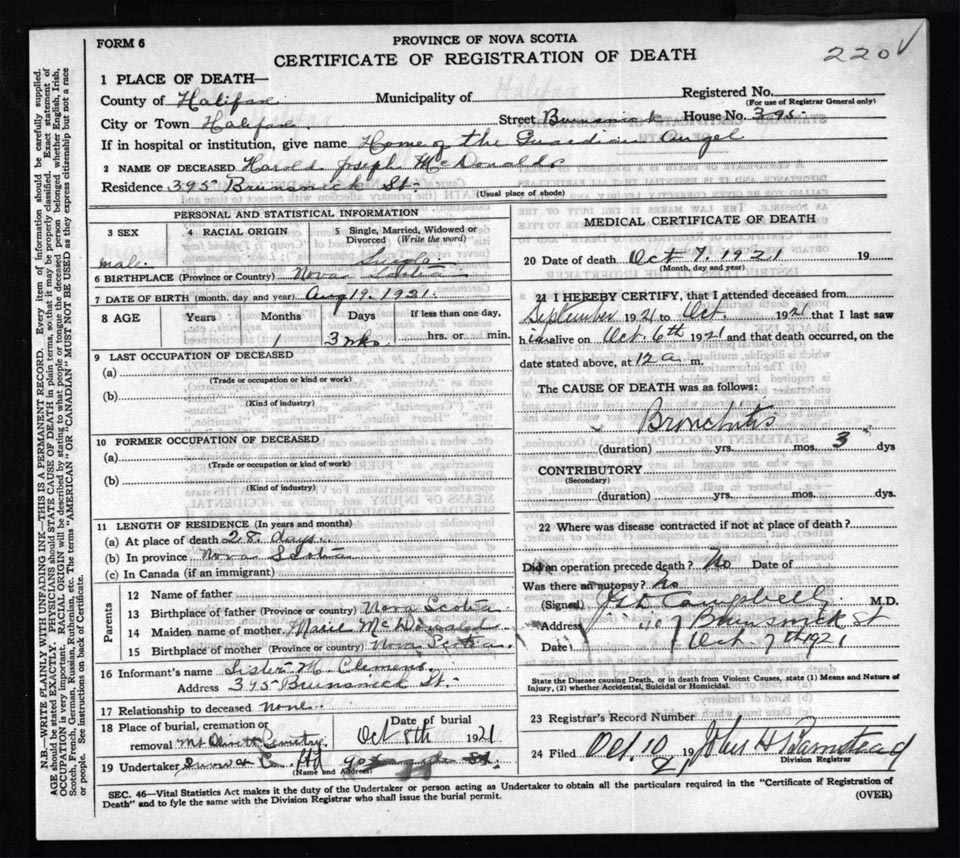 FORM 6
PROVINCE OF NOVA SCOTIA
CERTIFICATE OF REGISTRATION OF DEATH
220 √
1 PLACE OF DEATH—
County of Halifax Municipality of Registered No.
(For use of Registrar General only)
City or Town Halifax. Street Brunswick House No. 395
If in hospital or institution, give name Home of the Guardian Angel
2 NAME OF DECEASED Harold Joseph McDonald
Residence 395 Brunswick St.
(Usual place of abode)
PERSONAL AND STATISTICAL INFORMATION
3 SEX 4 RACIAL ORIGIN 5 Single, Married, Widowed or Divorced (Write the word)
male. Single
6 BIRTHPLACE (Province or Country) Nova Scotia
7 DATE OF BIRTH (month, day and year) Aug 19. 1921.
8 AGE Years Months Days If less than one day,
1 3 wks. hrs. or min.
9 LAST OCCUPATION OF DECEASED
(a)
(Trade or occupation or kind or work)
(b)
(Kind of industry)
10 FORMER OCCUPATION OF DECEASED
(a)
(Trade or occupation or kind or work)
(b)
(Kind of industry)
11 LENGTH OF RESIDENCE (In years and months)
(a) At place of death 28 days
(b) In province Nova Scotia
(c) In Canada (if an immigrant)
Parents
12 Name of father
13 Birthplace of father (Province or country) Nova Scotia
14 Maiden name of mother Marie McDonald
15 Birthplace of mother (Province or country) Nova Scotia.
16 Informant's name Sister M. Clemens.
Address 395 Brunswick St.
17 Relationship to deceased none
18 Place of burial, cremation or Date of burial
removal Mt Olivet Cemetry. Oct 8th 1921
19 Undertaker Snow & Co. Ltd St.
(Name and Address)
MEDICAL CERTIFICATE OF DEATH
20 Date of death Oct 7. 1921 19
(Month, day and year)
21 I HEREBY CERTIFY, that I attended deceased from
September 1921 to Oct. 1921 that I last saw
him alive on Oct. 6th 1921 and that death occurred, on the
date stated above, at 12 a m.
The CAUSE OF DEATH was as follows:
Bronchitis
(duration) yrs. mos. 3 dys
CONTRIBUTORY
(Secondary)
(duration) yrs. mos. dys.
22 Where was disease contracted if not at place of death?
Did an operation precede death? No Date of
Was there an autopsy? No
(Signed) Campbell M.D.
Address 407 Brunswick St
Date Oct. 7th 1921
State the Disease causing Death, or in death from Violent Causes, state (1) Means and Nature of
Injury, (2) whether Accidental, Suicidal or Homicidal.
23 Registrar's Record Number
24 Filed Oct. 10 1921 John H Barnstead
Division Registrar
SEC. 46—Vital Statistics Act makes it the duty of the Undertaker or person acting as Undertaker to obtain all the particulars required in the "Certificate of Registration of
Death" and to fyle the same with the Division Registrar who shall issue the burial permit.
(OVER)
N.B.—WRITE PLAINLY WITH UNFADING INK.—THIS IS A PERMANENT RECORD. Every item of information should be carefully supplied.
AGE should be stated EXACTLY. PHYSICIANS should STATE CAUSE OF DEATH in plain terms, so that it may be properly classified. Exact statement of
OCCUPATION is very important. RACIAL ORIGIN will be described by stating to what people or tongue the deceased person belonged whether English, Irish,
Scotch, French, German, Russian, Ruthenian, etc. The terms "AMERICAN" OR "CANADIAN" MUST NOT BE USED as they express citizenship but not a race
or people. See instructions on back of Certificate.